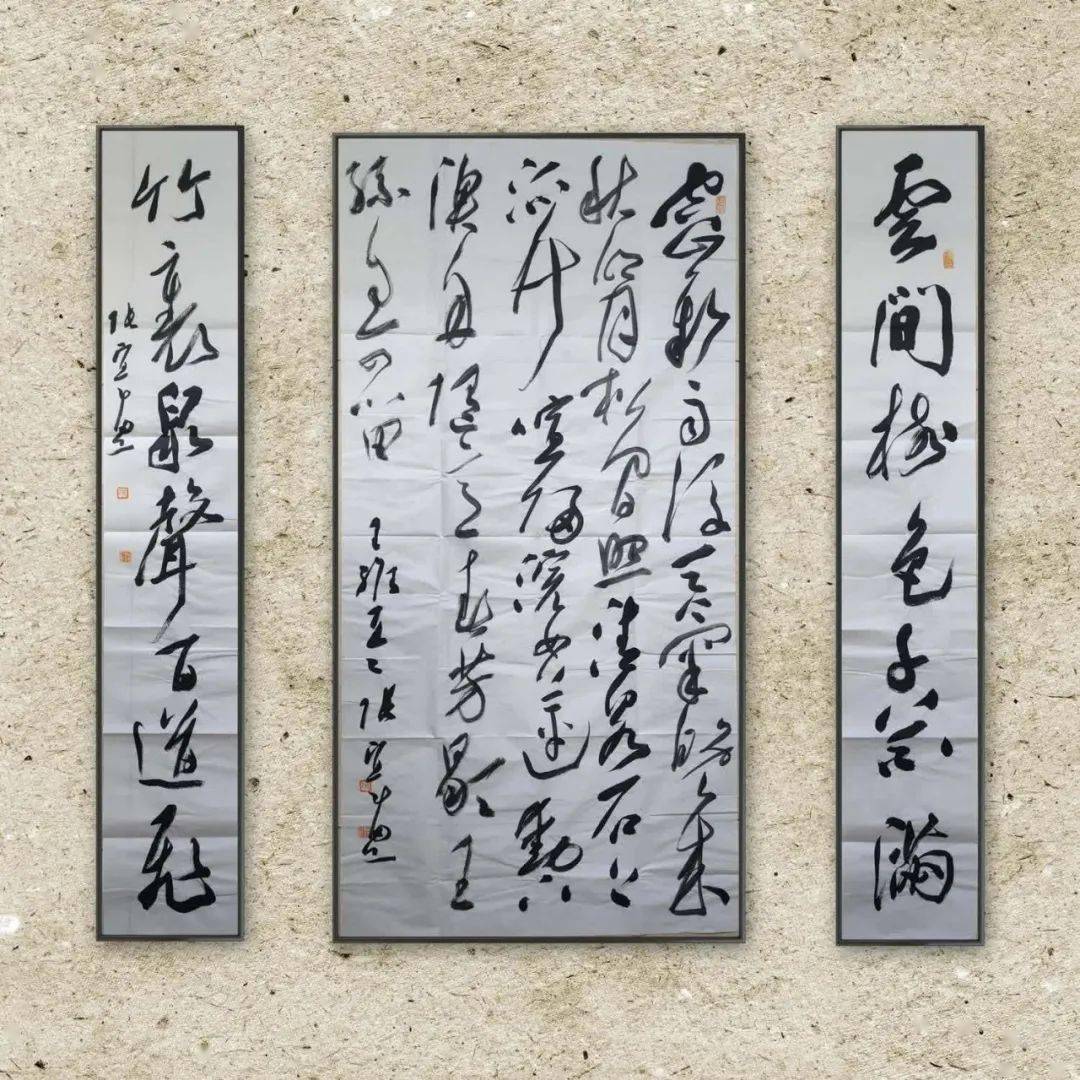 雲間樹色千花滿
空山新雨後天氣晚來
秋明月松間照清泉石上
流竹喧歸浣女蓮動下
漁舟隨意春芳歇王
孫自可留 王維五言 張
竹裏泉聲百道飛
張